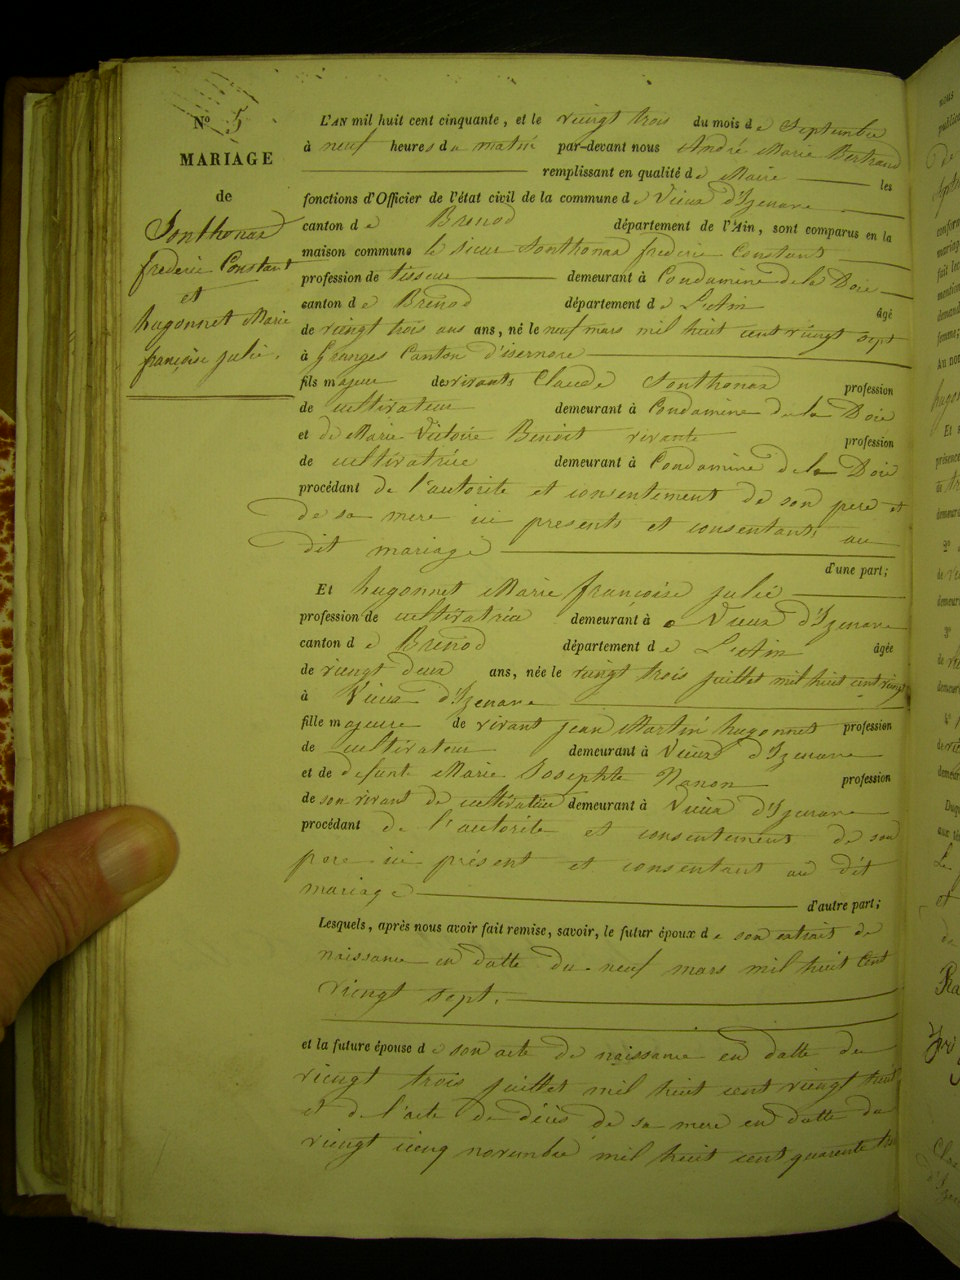 Nº 5
MARIAGE
de
Sonthonax
frederic Constant
et
hugonnet Marie
françoise julie.
L'AN mil huit cent cinquante, et le vieingt trois du mois de Septembre
à neuf heures du matin par-devant nous André Marie Bertrand
remplissant en qualité de Maire les
fonctions d'Officier de l'état civil de la commune de Vieux d'Izenave
canton de Brenod département de l'Ain, sont comparus en la
maison commune le sieur Sonthonax frederic Constant
profession de tisseur demeurant à Condamine de la Doie
canton de Brenod département de L'Ain âgé
de vieingt trois ans ans, né le neuf mars mil huit cent vieingt sept
à Granges Canton d'isernore
fils majeur de vivants Claude Sonthonax profession
de cultivateur demeurant à Condamine de la Doie
et de Marie Victoire Benoit vivante profession
de cultivatrice demeurant à Condamine de la Doie
procédant de l'autorite et consentement de son pere et
de sa mere ici presents et consentants au
dit mariage d'une part;
Et hugonnet Marie françoise julie
profession de cultivatrice demeurant à Vieux d'Izenave
canton de Brenod département de L'Ain âgée
de vieingt deux ans, née le vieingt trois juillet mil huit cent vieingt
à Vieux d'Izenave
fille majeure de vivant jean Martin hugonnet profession
de cultivateur demeurant à Vieux d'Izenave
et de defunte Marie Josephte Nanon profession
de son vivant de cultivatrice demeurant à Vieux d'Izenave
procédant de l'autorite et consentement de son
pere ici présent et consentant au dit
mariage d'autre part;
Lesquels, après nous avoir fait remise, savoir, le futur époux de son extrait de
naissance en datte du neuf mars mil huit cent
vieingt sept.
et la future épouse de son acte de naissance en datte du
vieingt trois juillet mil huit cent vieingt huit
et de l'acte de décès de sa mere en datte du
vieingt cinq novembre mil huit cent quarente